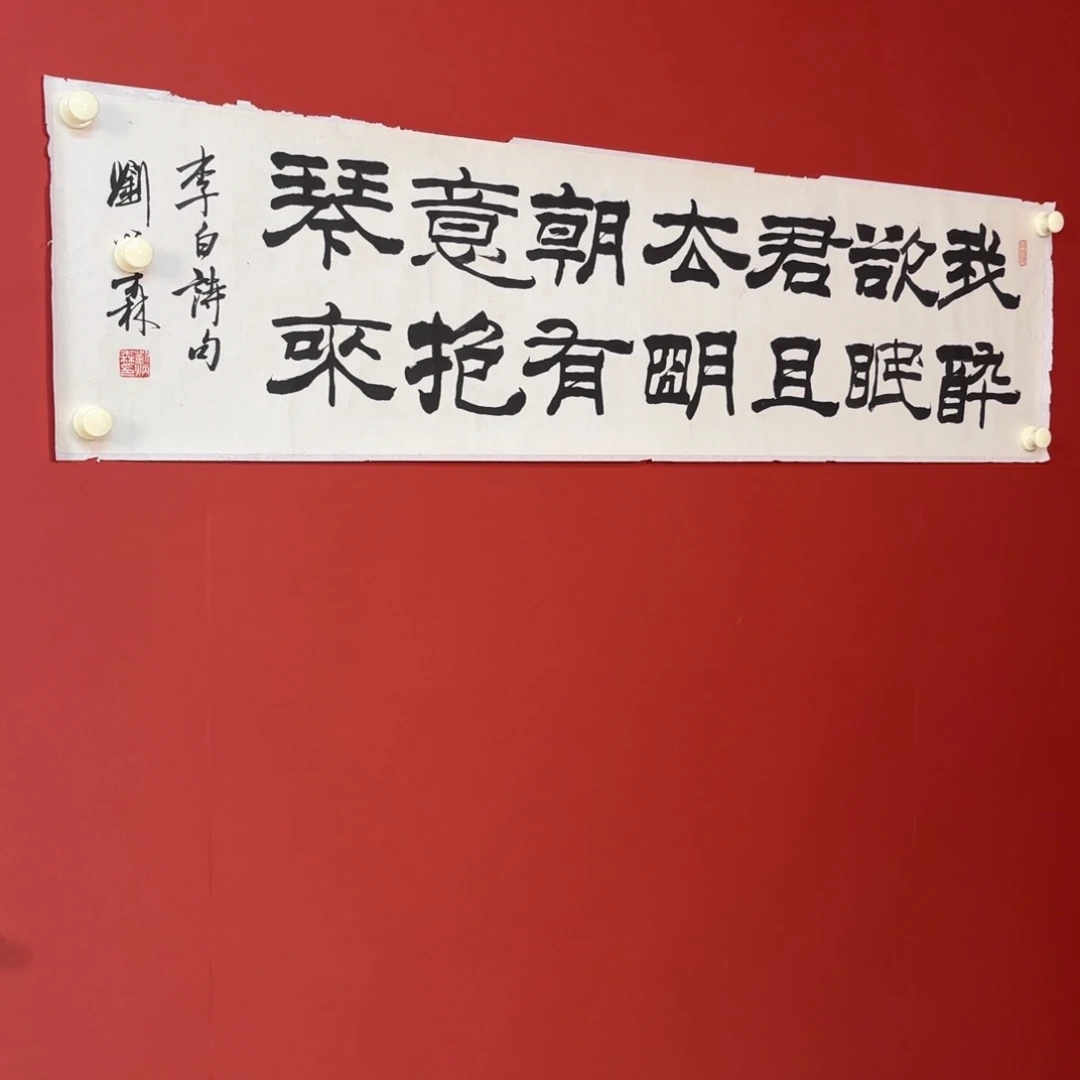 我醉
欲眠
君且
去明
朝有
意抱
琴來
李白詩句
劉 森